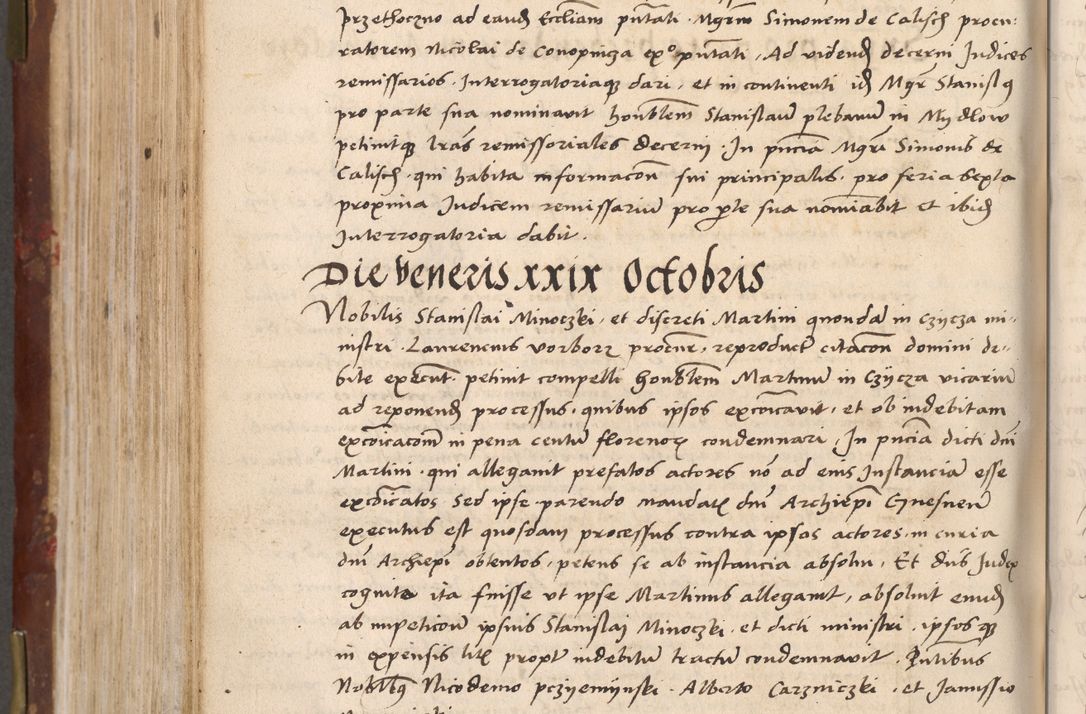 przethoczno ad eand Eccliam pntati. Mgrm Simonem de Calisch procu-
ratorem Nicolai de Conopnicza exº pntati, Ad videnđ decerni Judices
remissarios. Interrogatoriaqȝ dari, et in continenti iđ Mgr Stanislꝯ
pro parte sua nominavit honblem Stanislaū plebanū in Mydlow
petivitqȝ lrās remissoriales decerni. In pncia Mgri Simonis de
Calisch. qui habita informacōn sui principalis. pro feria sexta
proxima Judicem remissariū pro ꝑte sua nomīabit et ibiđ
Interrogatoria dabit.
Die Veneris xxix Octobris
Nobilis Stanislai Minoczki, et discreti Martini quondā in Czycza mi-
nistri. Laurencius vorborz procur, reproduct citacōn domini de-
bite execut. petivit compelli honblem Martinū in Czycza vicariū
ad reponenđ processus, quibus ipsos excōicavit, et ob indebitam
excōicacōnē in pena centū florenoꝝ condemnari, In pncia dicti dni
Martini. qui allegavit prefatos actores nō ad eius Instanciā esse
excōicatos. Sed ipse parendo mandatꝭ dni Archiepi Gnesnen
executus est quosdam processus contra ipsos actores, in curia
dni Archiepi obtentos, petens se ab instancia absolvi, Et dns Judex
cognito ita fuisse ut ipse Martinus allegavit, absolvit eunđ
ab impeticōne ipsius Stanislai Minoczki, et dicti ministri. ipsosqȝ
in expensis litꝭ propt indebitū tractū condemnavit. Pntibus
Nobilibꝯ Nicodemo pczyeminski. Alberto Carzniczki, et Janussio